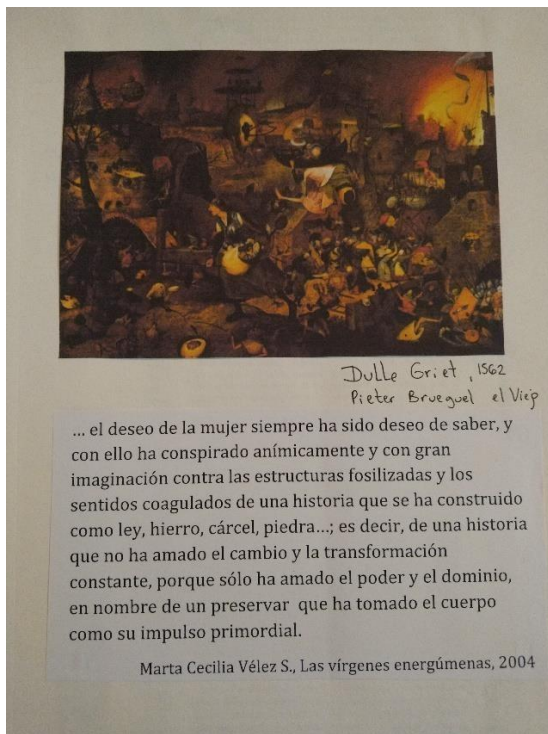 Dulle Griet, 1562
Pieter Brueguel el Viejo
... el deseo de la mujer siempre ha sido deseo de saber, y
con ello ha conspirado anímicamente y con gran
imaginación contra las estructuras fosilizadas y los
sentidos coagulados de una historia que se ha construido
como ley, hierro, cárcel, piedra...; es decir, de una historia
que no ha amado el cambio y la transformación
constante, porque sólo ha amado el poder y el dominio,
en nombre de un preservar que ha tomado el cuerpo
como su impulso primordial.
Marta Cecilia Vélez S., Las vírgenes energúmenas, 2004